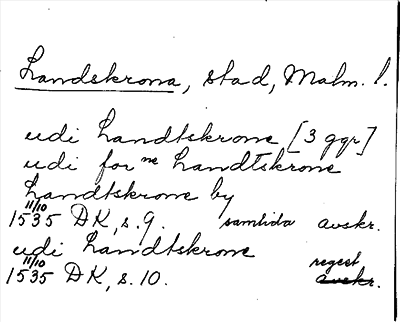 Landskrona, stad, Malm. l.
udi Landtskrone [3 ggr]
udi for ne Landtskrone
Landtskrone by
1535 11/10 DK, s. 9. samtida avskr.
udi Landtskrone
1535 11/10 DK, s. 10. regest avskr.